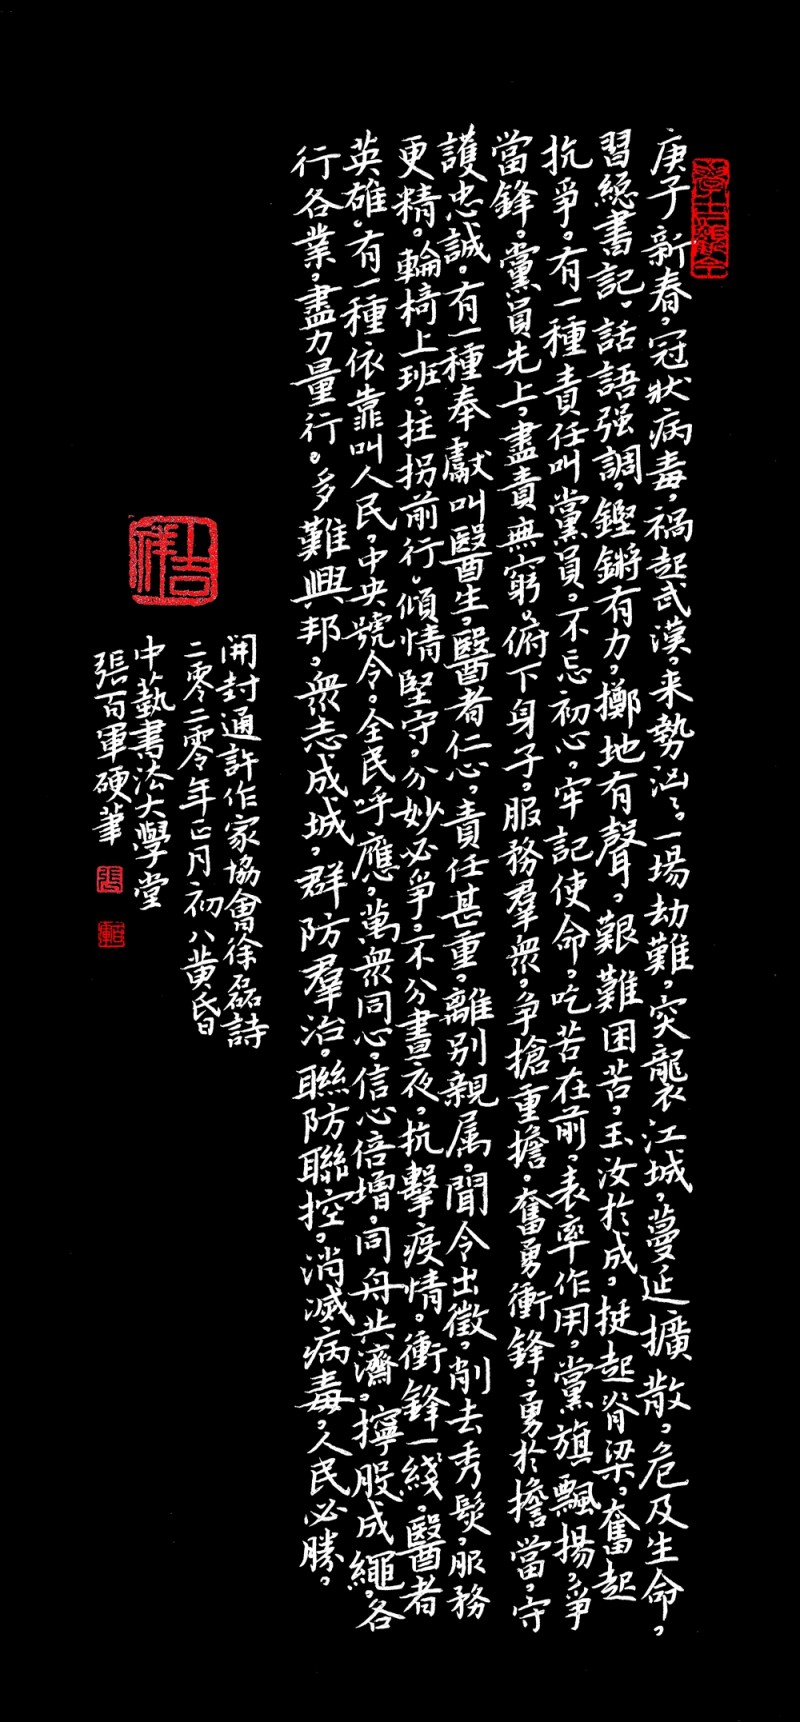 庚子新春，冠狀病毒，禍起武漢，来勢汹々。一場劫難，突襲江城，蔓延擴散，危及生命，
習總書記，話語强調，鏗鏘有力，擲地有聲，艱難困苦，玉汝於成，挺起脊梁，奮起
抗爭。有一種責任叫黨員，不忘初心，牢記使命，吃苦在前，表率作用，黨旗飄揚，爭
當鋒，黨員先上，盡責無窮。俯下身子，服務羣衆，争搶重擔，奮勇衝鋒，勇於擔當，守
護忠誠。有一種奉獻叫醫生，醫者仁心，責任甚重，離别親属，聞令出徵，削去秀髮，服務
更精。輪椅上班，拄拐前行。傾情堅守，分妙必爭，不分晝夜，抗擊疫情。衝鋒一綫，醫者
英雄。有一種依靠叫人民，中央號令。全民呼應，萬衆同心，信心倍增，同舟共濟，擰股成繩，各
行各業，盡力量行。多難興邦，衆志成城，群防羣治，聯防聯控，消滅病毒，人民必勝。
開封通許作家協會徐磊詩
二零二零年正月初八黄昏
中藝書法大學堂
張百軍硬筆
張